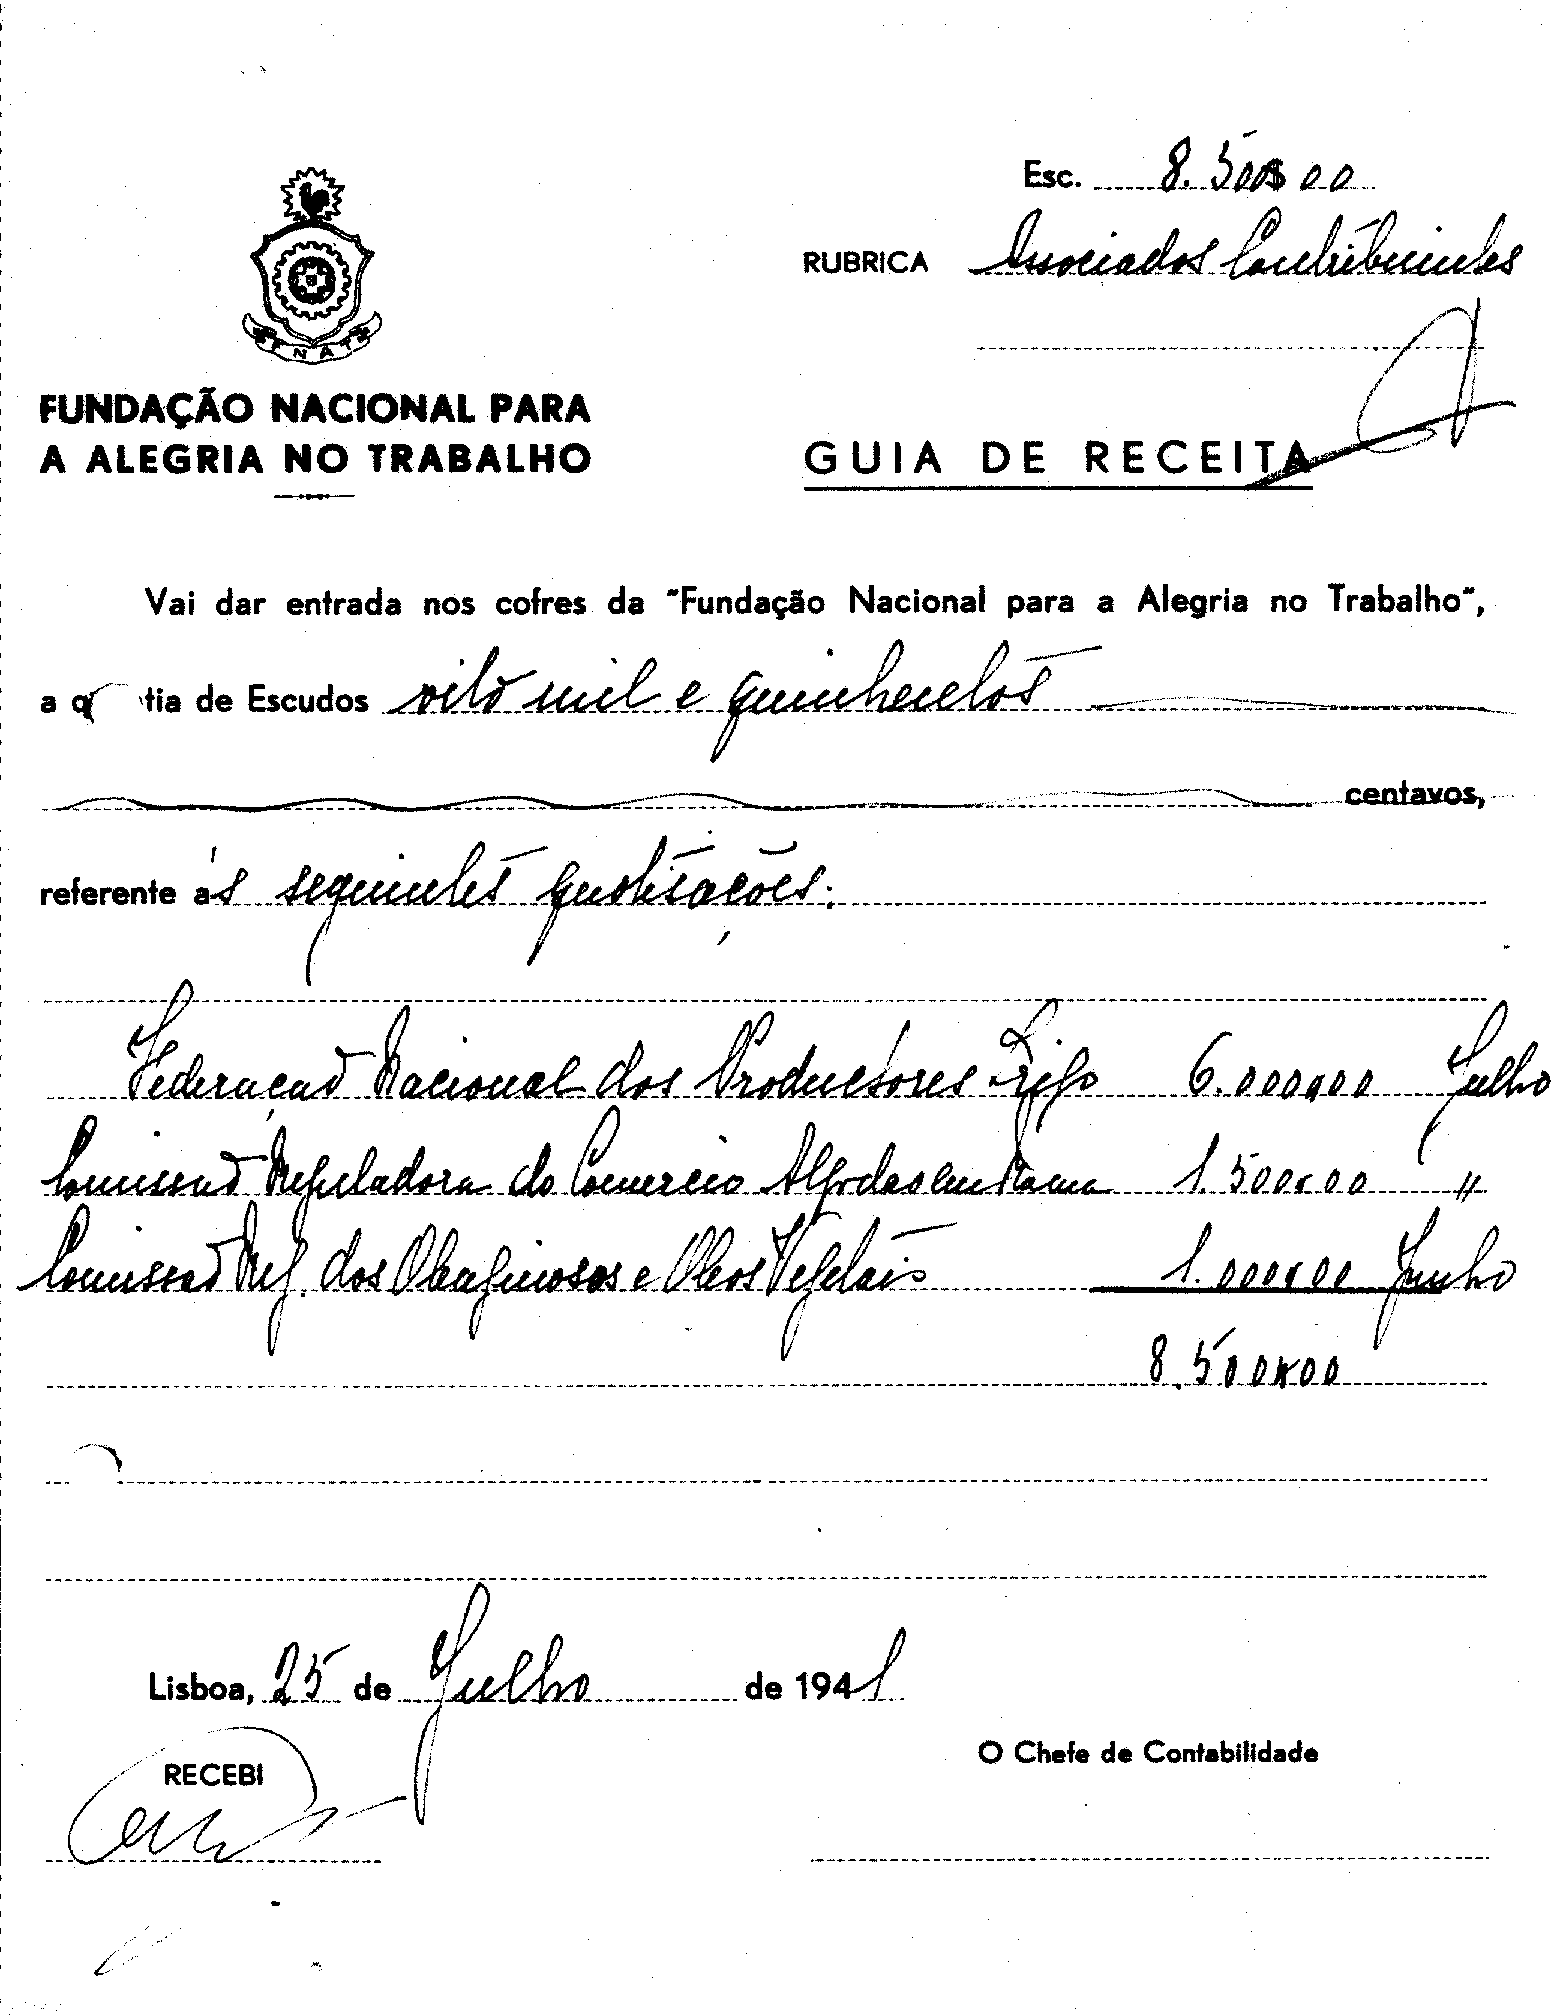 Esc. 8.500$00
RUBRICA Associados Contribuintes
FNAT
FUNDAÇÃO NACIONAL PARA
A ALEGRIA NO TRABALHO
GUIA DE RECEITA
Vai dar entrada nos cofres da "Fundação Nacional para a Alegria no Trabalho",
a q tia de Escudos oito mil e quinhentos
centavos,
referente ás seguintes quotisações:
Federação Nacional dos Productores Trigo 6.000$00 Julho
Comissão Reguladora do Comercio Algodão em Rama 1.500$00 "
Comissão Reg. dos Oleaginosos e Oleos Vegetais 1.000$00 Junho
8.500$00
Lisboa, 25 de Julho de 1941
RECEBI
O Chefe de Contabilidade